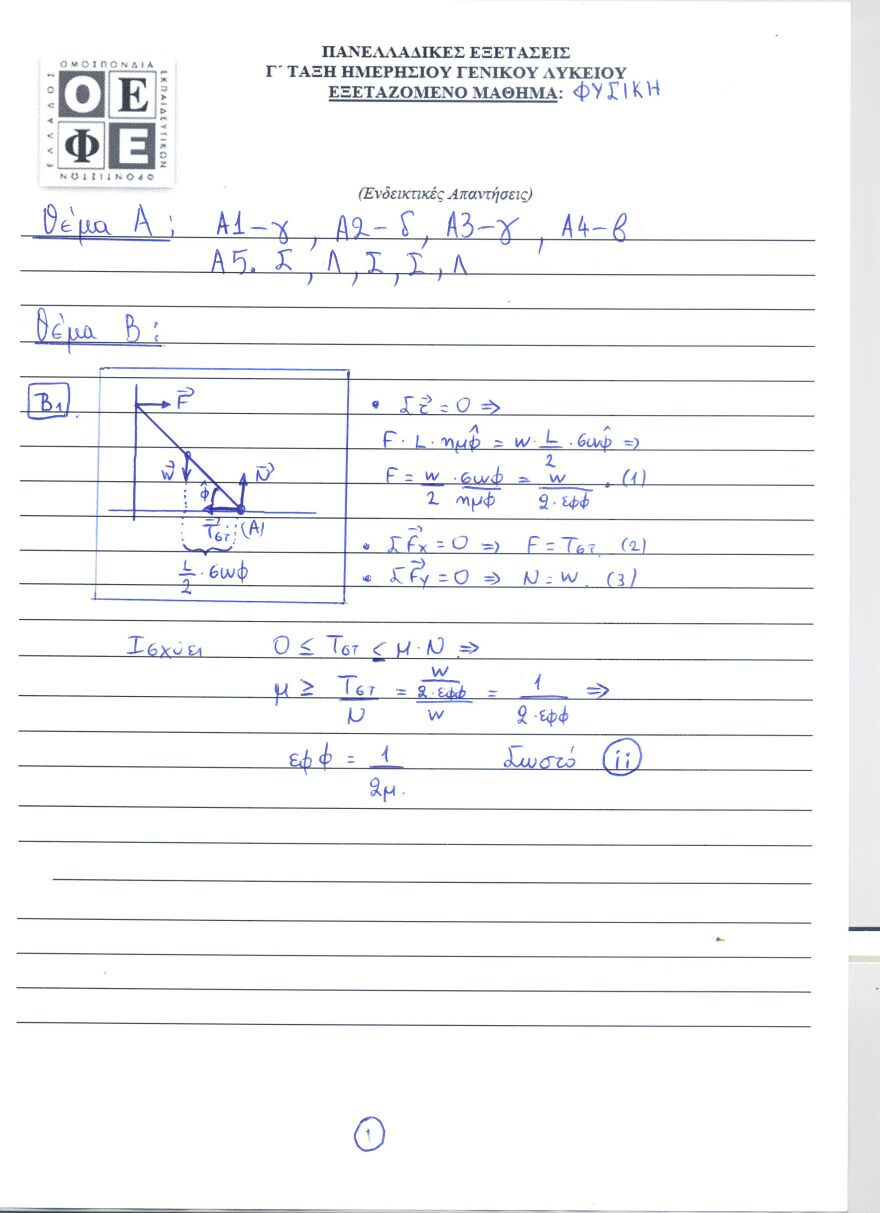 ΟΜΟΣΠΟΝΔΙΑ
ΕΚΠΑΙΔΕΥΤΙΚΩΝ
ΦΡΟΝΤΙΣΤΩΝ
ΕΛΛΑΔΟΣ
Ο Ε
Φ Ε
ΠΑΝΕΛΛΑΔΙΚΕΣ ΕΞΕΤΑΣΕΙΣ
Γ΄ ΤΑΞΗ ΗΜΕΡΗΣΙΟΥ ΓΕΝΙΚΟΥ ΛΥΚΕΙΟΥ
ΕΞΕΤΑΖΟΜΕΝΟ ΜΑΘΗΜΑ: ΦΥΣΙΚΗ
(Ενδεικτικές Απαντήσεις)
Θέμα Α: Α1-γ, Α2-δ, Α3-γ, Α4-β
Α5. Σ, Λ, Σ, Σ, Λ
Θέμα Β:
Β1.
F⃗
w⃗
N⃗
φ̂
T⃗στ (A)
L/2 · συνφ
• Στ⃗ = 0 ⇒
F · L · ημφ̂ = w · L/2 · συνφ̂ ⇒
F = w/2 · συνφ/ημφ = w/2·εφφ . (1)
• ΣF⃗x = 0 ⇒ F = Tστ. (2)
• ΣF⃗y = 0 ⇒ N = w. (3)
Ισχύει 0 ≤ Tστ ≤ μ·N ⇒
μ ≥ Tστ/N = (w/2·εφφ)/w = 1/2·εφφ ⇒
εφφ = 1/2μ. Σωστό (ii)
1